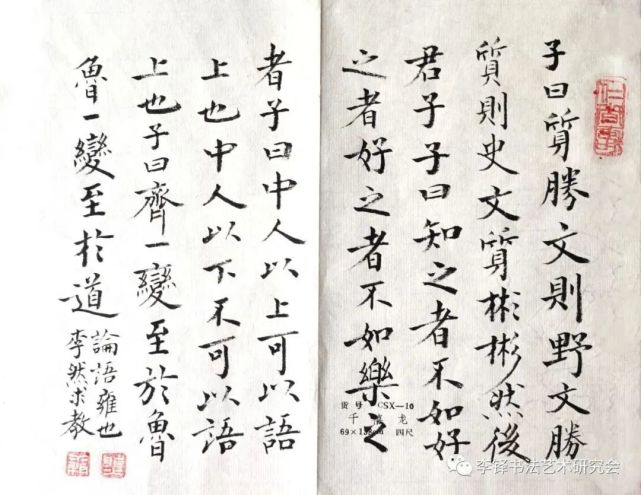 子曰質勝文則野文勝
質則史文質彬彬然後
君子子曰知之者不如好
之者好之者不如樂之
者子曰中人以上可以語
上也中人以下不可以語
上也子曰齊一變至於魯
魯一變至於道
論語雍也
李然求教
货号 CSX—10
千 龙
69×138cm 四尺
李铎书法艺术研究会